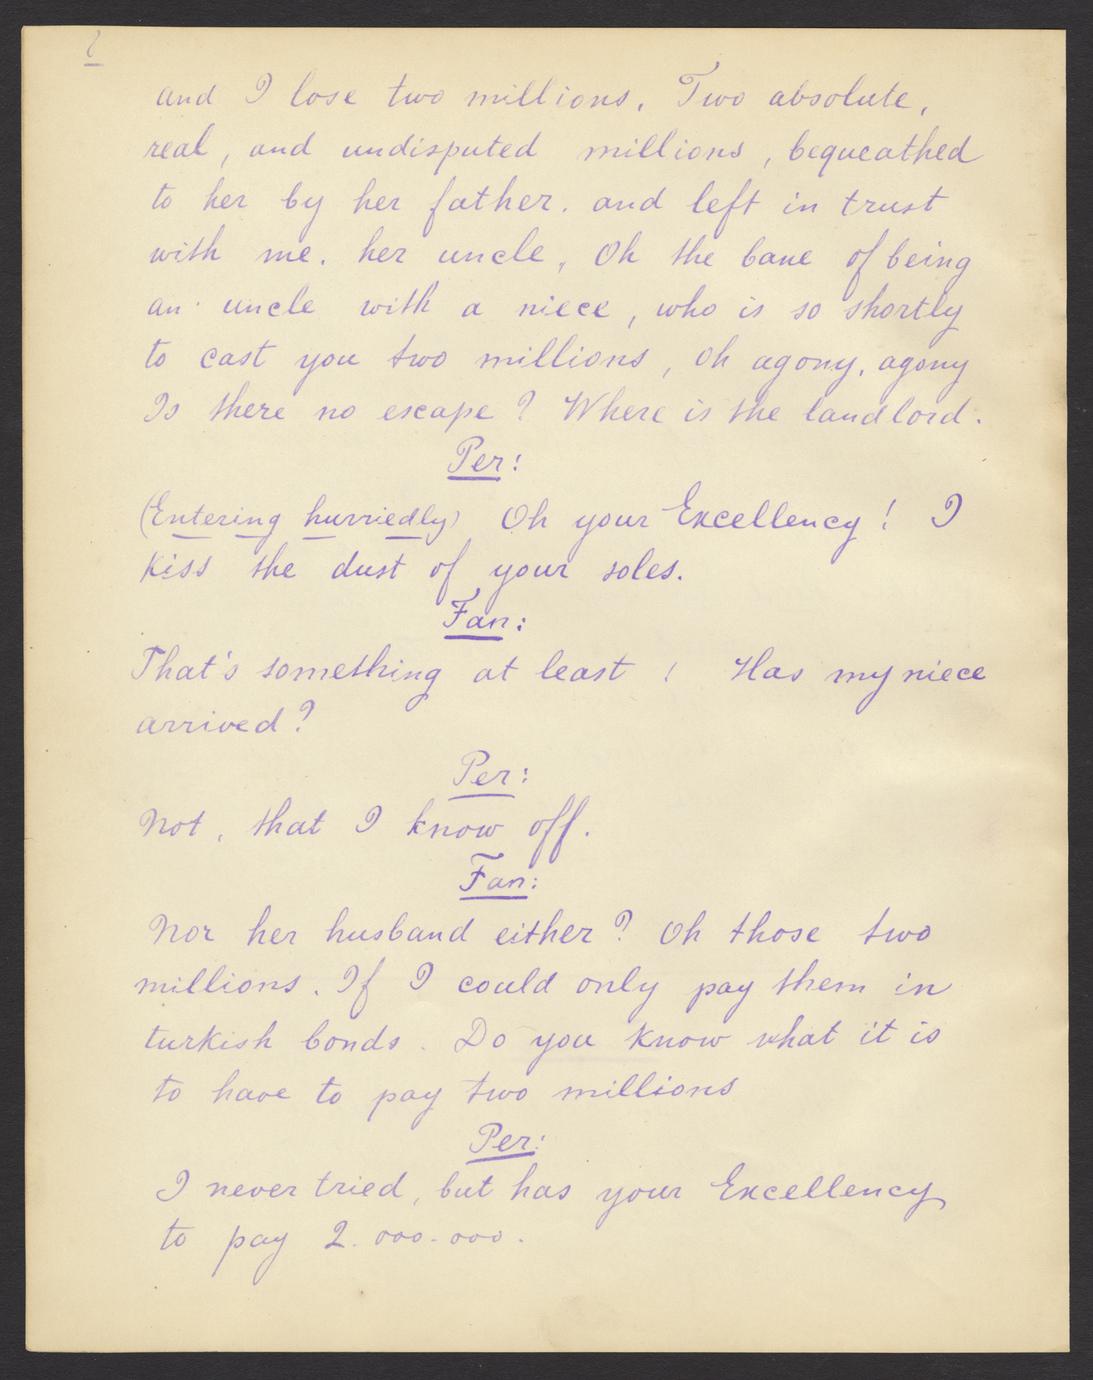 and I lose two millions. Two absolute,
real, and undisputed millions, bequeathed
to her by her father. and left in trust
with me. her uncle, Oh the bane of being
an uncle with a niece, who is so shortly
to cast you two millions, oh agony, agony
Is there no escape? Where is the landlord.
Per:
(Entering hurriedly) Oh your Excellency! I
kiss the dust of your soles.
Fan:
That's something at least! Has my niece
arrived?
Per:
Not, that I know off.
Fan:
Nor her husband either? Oh those two
millions. If I could only pay them in
turkish bonds. Do you know what it is
to have to pay two millions
Per:
I never tried, but has your Excellency
to pay 2.000.000.